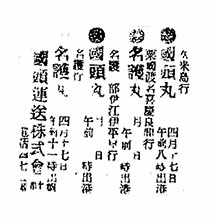 久米島行
國頭丸 四月十七日
午前八時出港
粟國渡名喜慶良間行
名護丸 月 日
午前 時出港
名護 部伊江伊平屋行
國頭丸 月 日
午前 時出港
名護行
名護丸 四月十七日
午前十一時出港
國頭運送株式會社